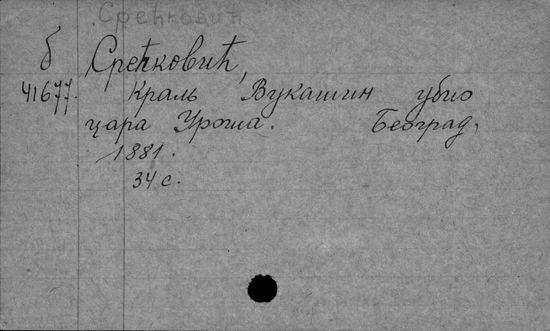 Срећковић
б Срећковић,
41677. Краль Вукашин убио
цара Уроша. Београд,
1881.
34 с.